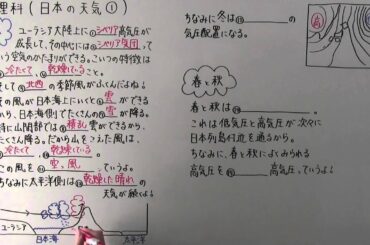 理科(日本の天気①)
ユーラシア大陸上に①シベリア高気圧が
成長して、その中には②シベリア気団って
いう空気のかたまりができる。こいつの特徴は
冷たくて、④乾燥していること
て⑤北西の季節風がふくんだよね
風が日本海上にいくと⑥雲ができる
から、日本海側でたくさんの⑦雪が降る。
特に山間部では⑧積乱雲ができるから、
たくさん降る。だから山をこえた風は、
冷たく、⑩乾燥している。
この風を空っ風っていうよ。
ちなみに太平洋側は⑫乾燥した晴れの
天気が続くよ
ユーラシア
日本海
太平洋
ちなみに冬は⑬の
気圧配置になる。
春と秋
春と秋は⑭。
これは低気圧と高気圧が次々に
日本列島付近を通るから。
ちなみに、春と秋によくみられる
高気圧を⑮高気圧、っていうよ!
高